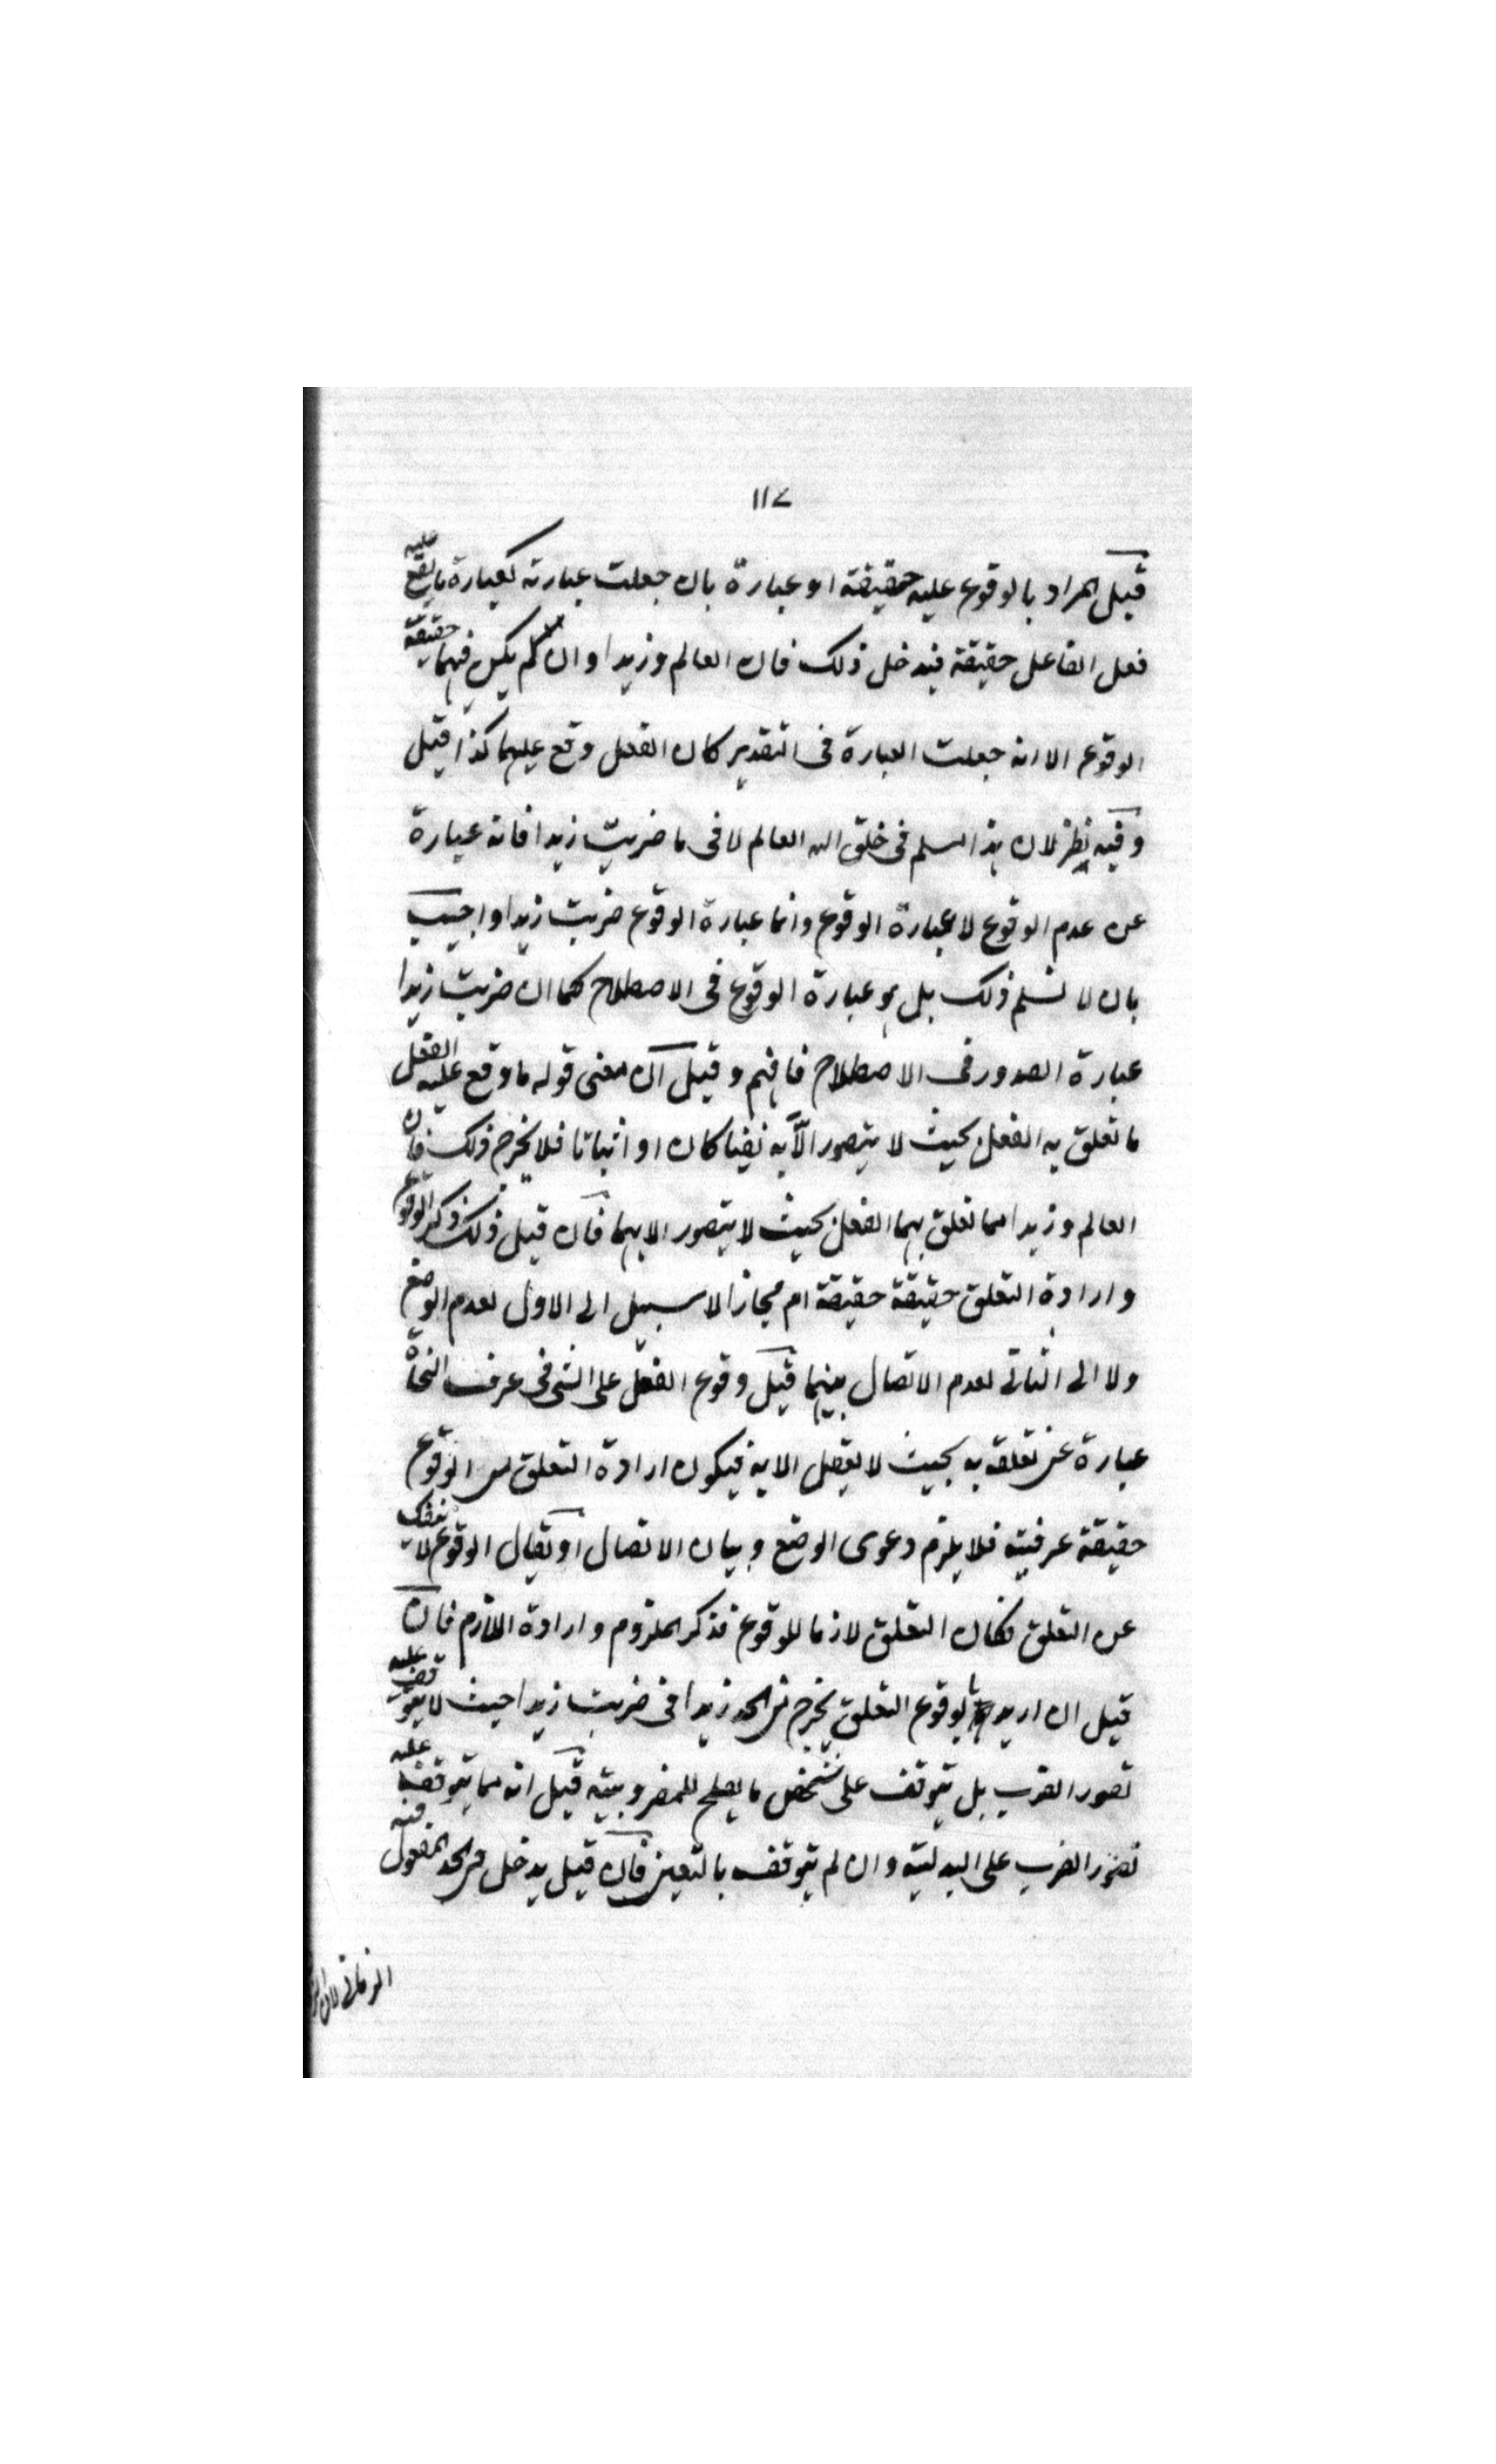 ١١٧
قيل المراد بالوقوع عليه حقيقة او عبارة بان جعلت عبارته كعبارة ما يقع عليه
فعل الفاعل حقيقة فيدخل ذلك فان العالم وزيدا وان لم يكن فيهما حقيقة
الوقوع الا انه جعلت العبارة فى التقدير كان الفعل وقع عليهما كذا قيل
وفيه نظر لان هذا مسلم فى خلق الله العالم لا فى ما ضربت زيدا فانه عبارة
عن عدم الوقوع لا عبارة الوقوع وانما عبارة الوقوع ضربت زيدا واجيب
بان لا نسلم ذلك بل هو عبارة الوقوع فى الاصطلاح كما ان ضربت زيدا
عبارة الصدور فى الاصطلاح فافهم وقيل ان معنى قوله ما وقع عليه الفعل
ما تعلق به الفعل بحيث لا يتصور الا به نفيا كان او اثباتا فلا يخرج ذلك فان
العالم وزيدا مما تعلق بهما الفعل بحيث لا يتصور الا بهما فان قيل ذلك ذكر الوقوع
وارادة التعلق حقيقة حقيقة ام مجاز لا سبيل الى الاول لعدم الوضع
ولا الى الثانى لعدم الاتصال بينهما قيل وقوع الفعل على الشى فى عرف النحاة
عبارة عن تعلقه به بحيث لا يعقل الا به فيكون ارادة التعلق من الوقوع
حقيقة عرفية فلا يلزم دعوى الوضع وبيان الاتصال او يقال الوقوع لا ينفك
عن التعلق فكان التعلق لازما للوقوع فذكر الملزوم وارادة اللازم فان
قيل ان اريد بالوقوع التعلق يخرج من الحد زيدا فى ضربت زيدا حيث لا يتوقف عليه
تصور الضرب بل يتوقف على شخص ما يصلح للمضروبية قيل انه مما يتوقف عليه
تصور الضرب على البدلية وان لم يتوقف بالتعين فان قيل يدخل فى الحد المفعول فيه
الزمانى لان